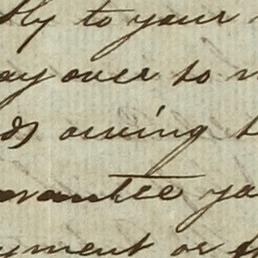 tly to your
ay over to
ds owing t
arantee yo
yment or